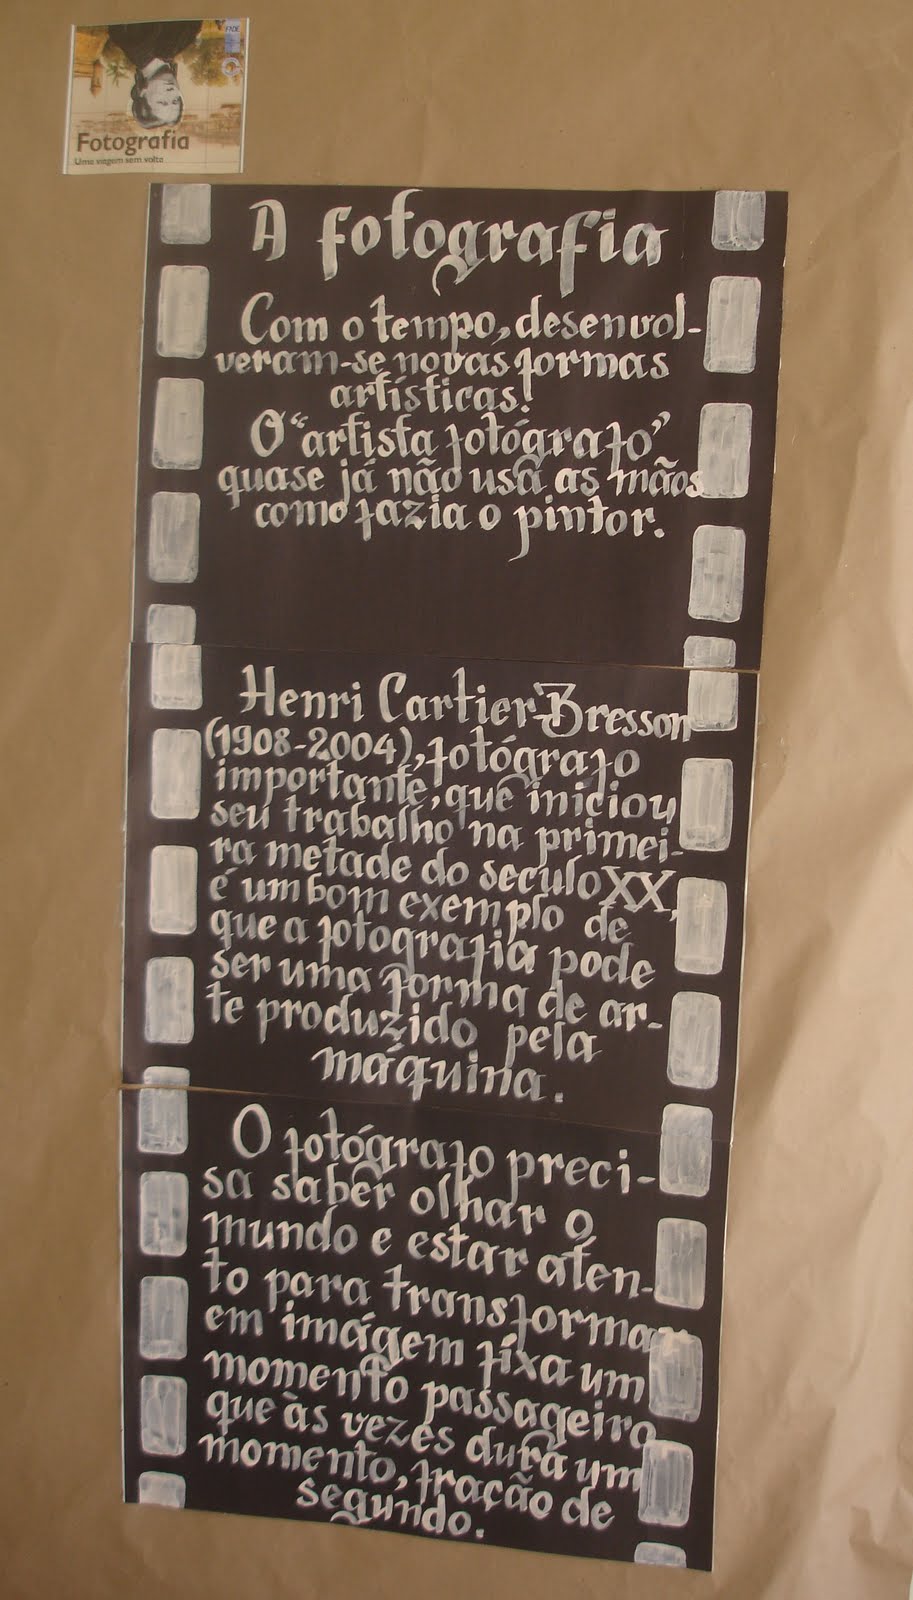 FNDE
Fotografia
Uma viagem sem volta
A fotografia
Com o tempo, desenvol-
veram-se novas formas
artísticas!
O "artista fotógrafo"
quase já não usa as mãos
como fazia o pintor.
Henri Cartier-Bresson
(1908-2004), fotógrafo
importante, que iniciou
seu trabalho na primei-
ra metade do seculo XX,
é um bom exemplo de
que a fotografia pode
ser uma forma de ar-
te produzido pela
máquina.
O fotógrafo preci-
sa saber olhar o
mundo e estar aten-
to para transformar
em imágem fixa um
momento passageiro
que às vezes dura um
momento, fração de
segundo.